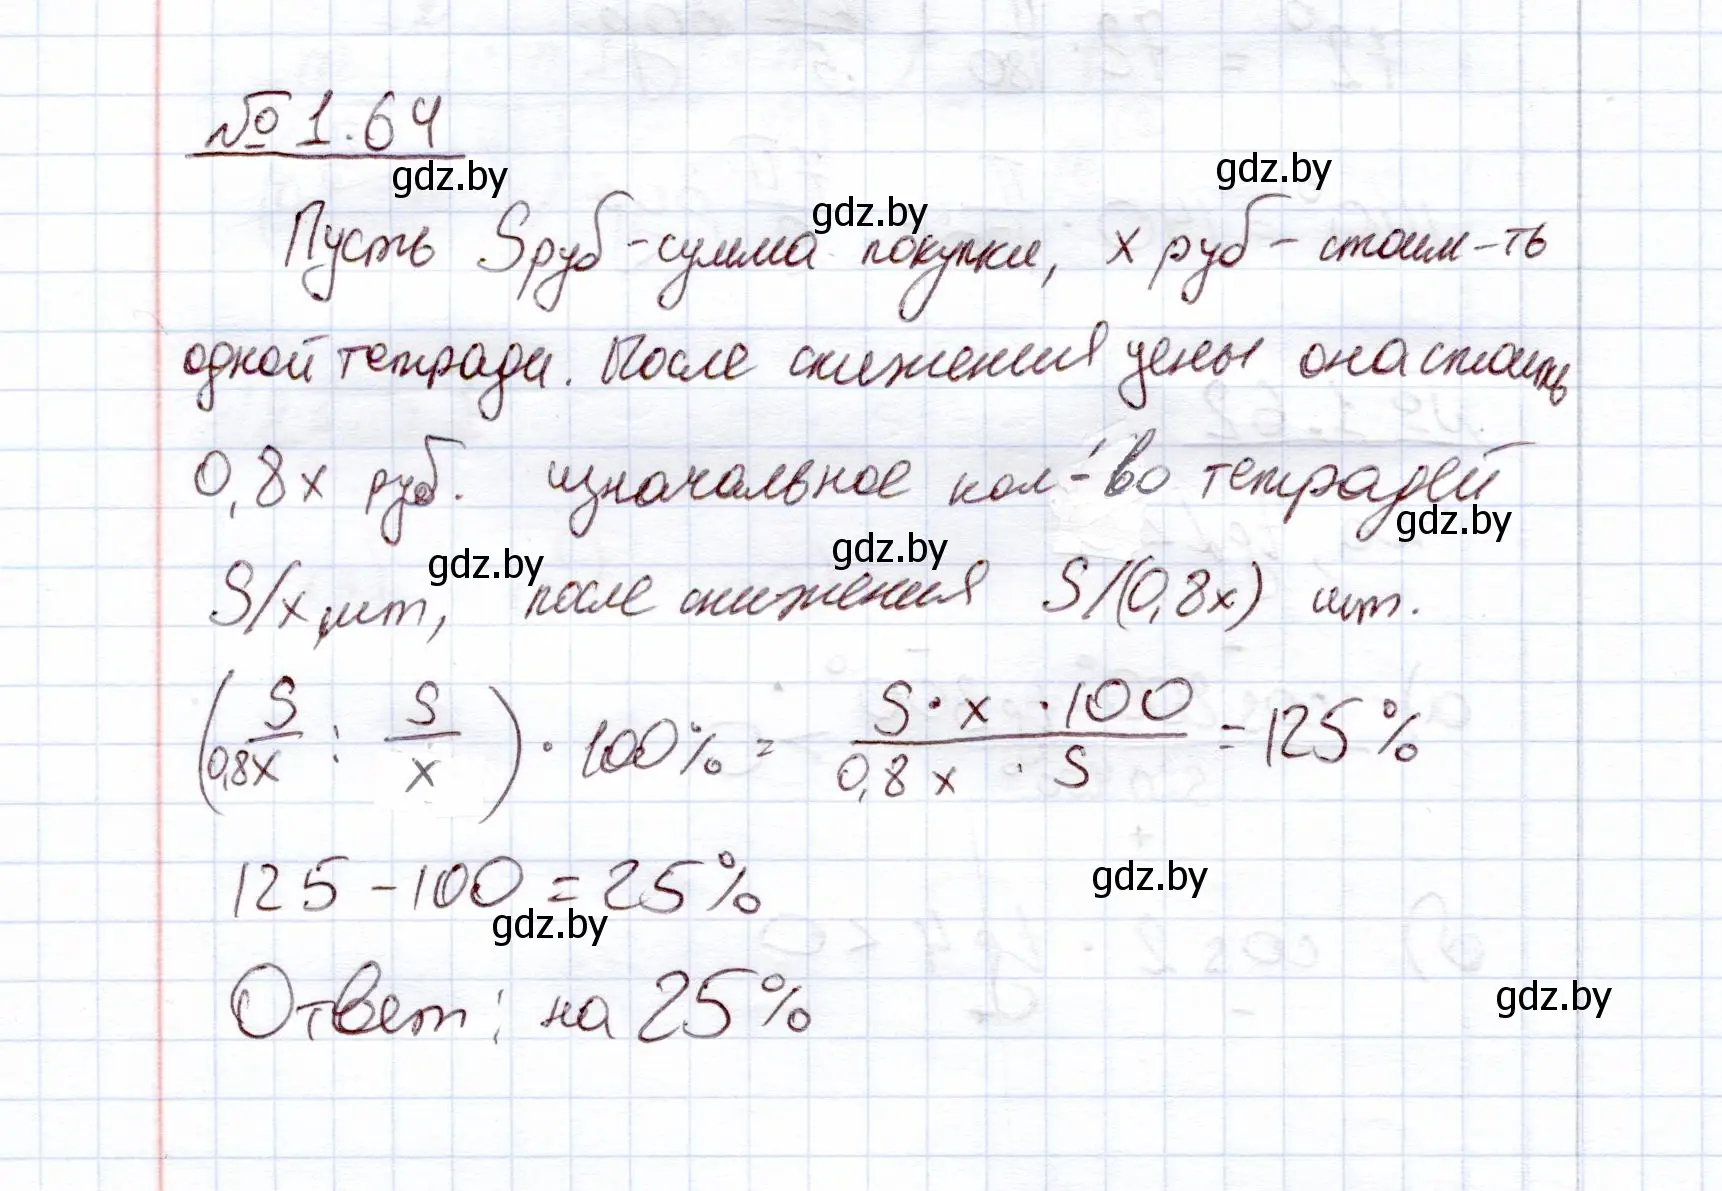 № 1.64
gdz.by
gdz.by
gdz.by
Пусть S руб - сумма покупки, x руб - стоим-ть
одной тетради. После снижения цены она стоить
0,8x руб. изначальное кол-во тетрадей
gdz.by
gdz.by
gdz.by
S/x шт, после снижения S/(0,8x) шт.
(S/0,8x : S/x) · 100% = S · x · 100 / 0,8x · S = 125%
125 - 100 = 25%
gdz.by
gdz.by
Ответ: на 25%
gdz.by